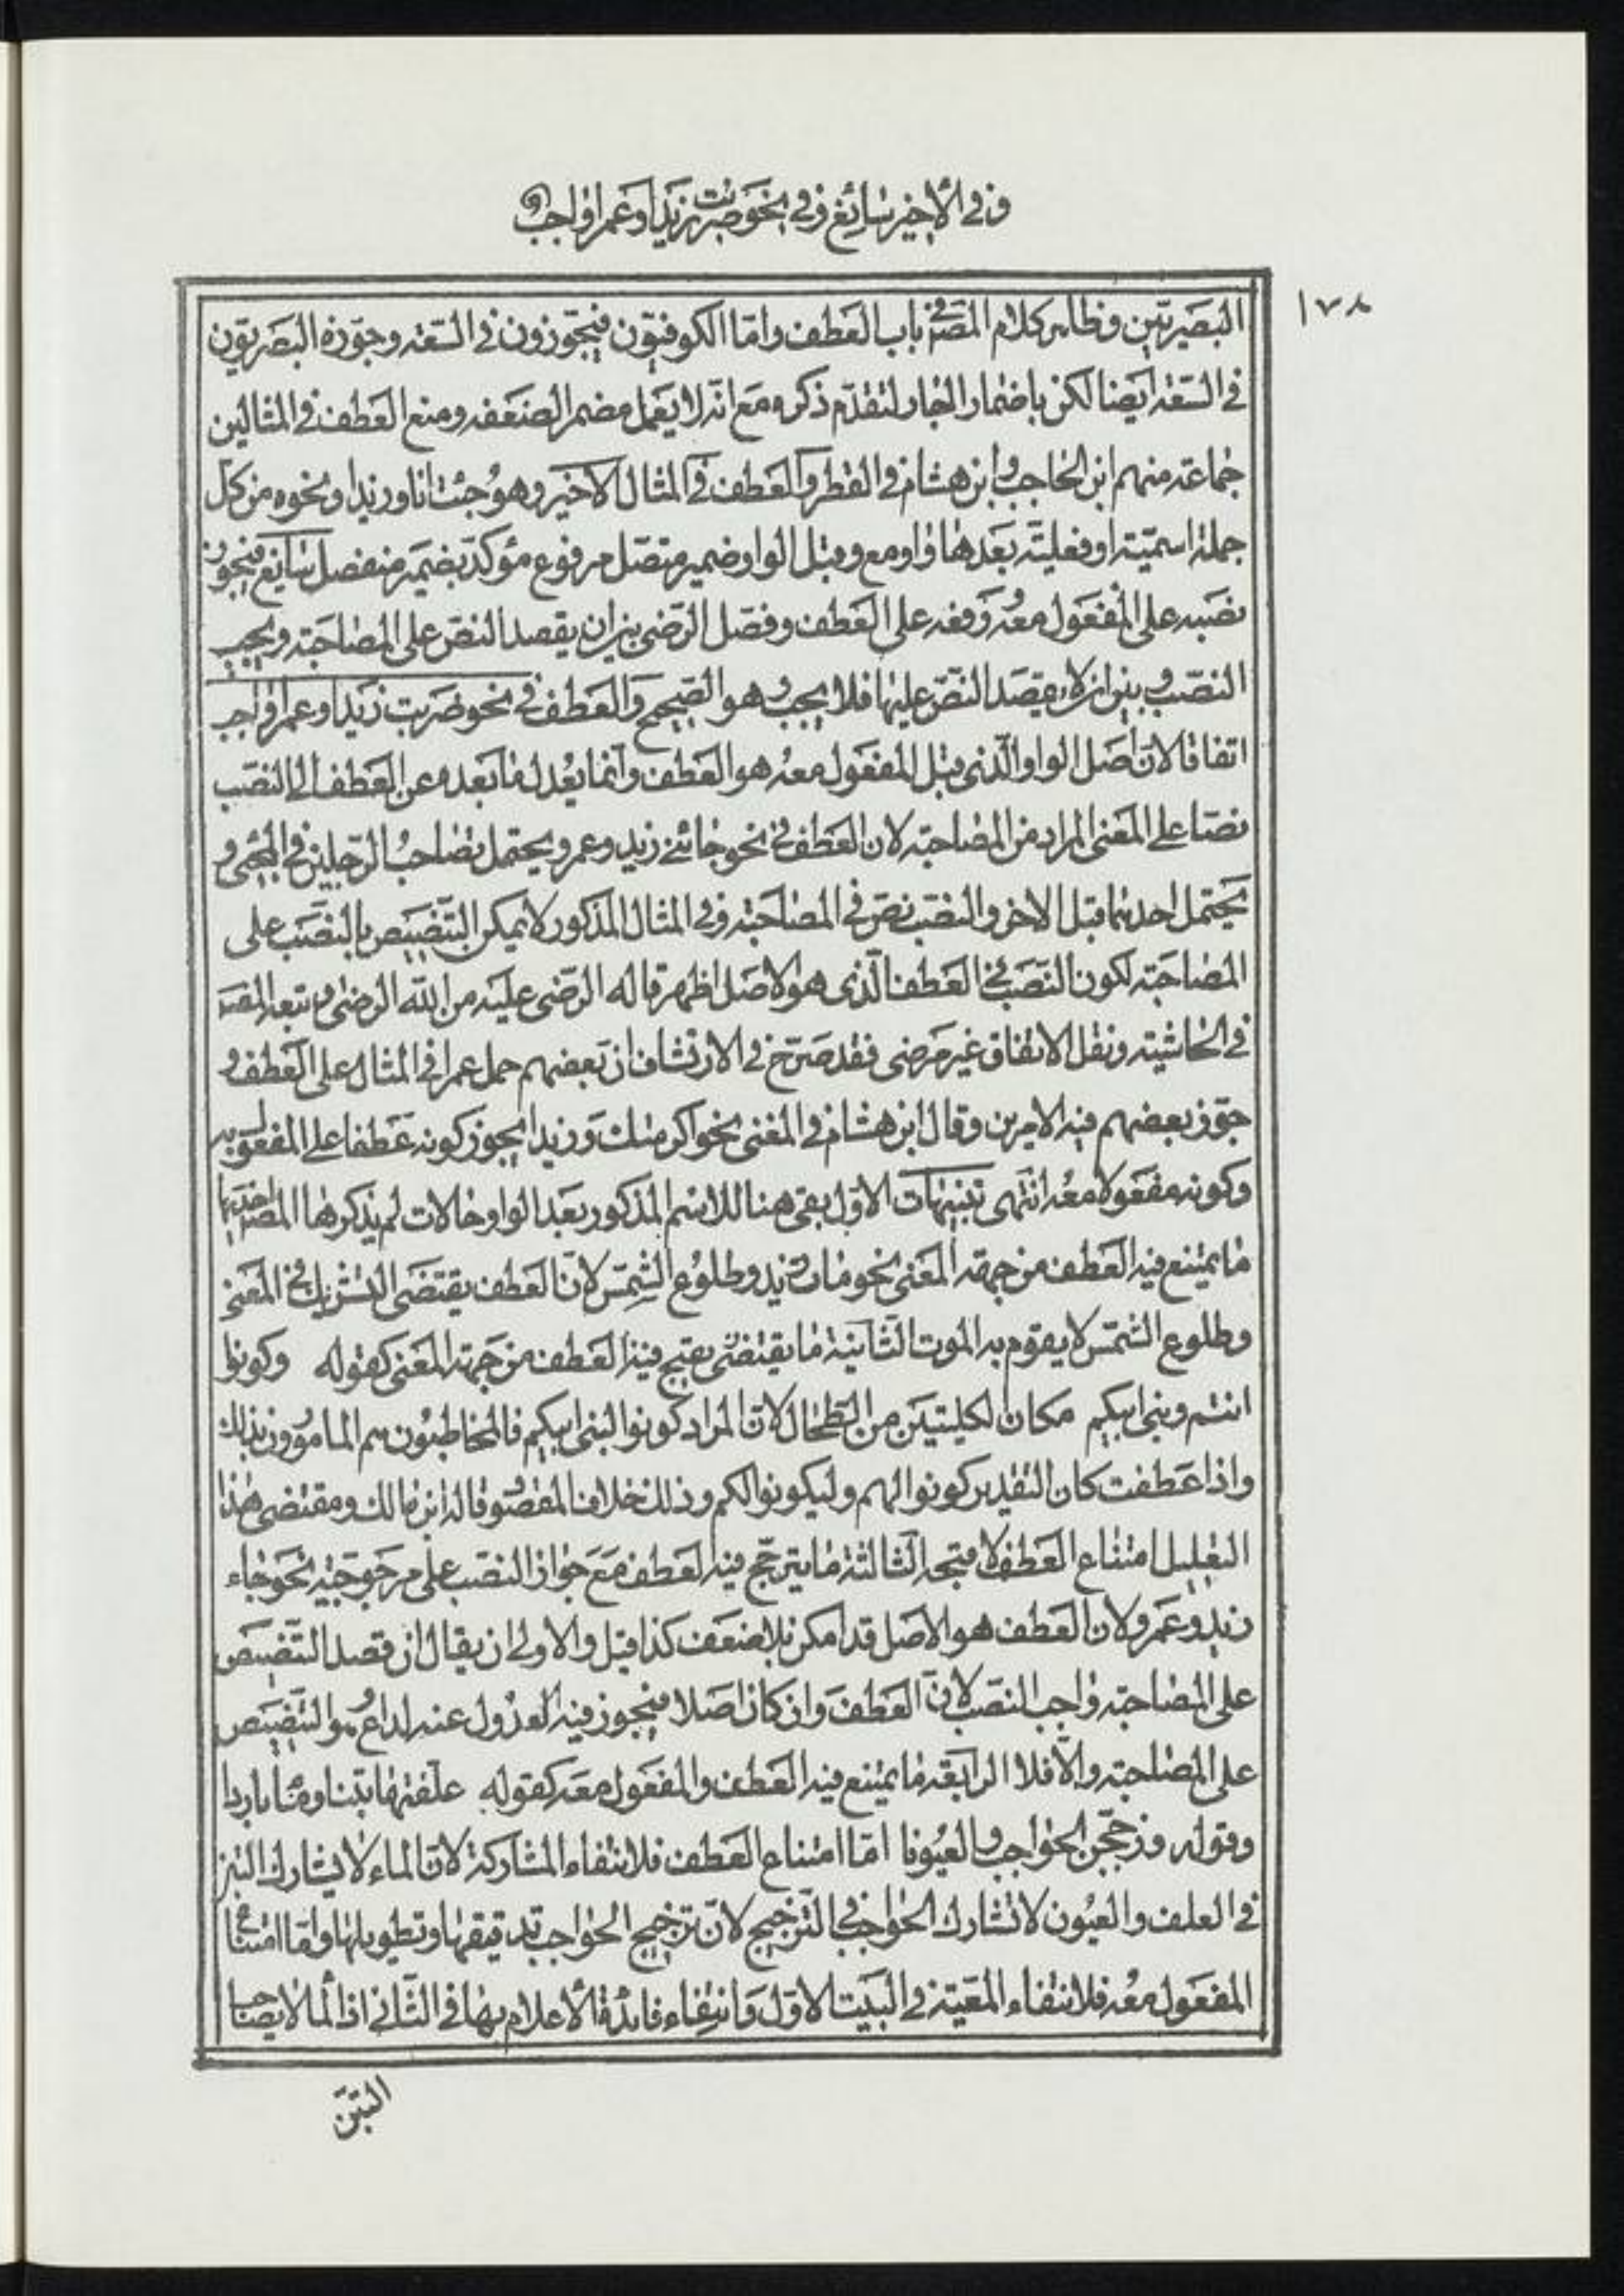 وفي الأخير سائغ وفي نحو ضربت زيدا وعمرا واجب
١٧٨
البصريين وظاهر كلام المصنف في باب العطف وامّا الكوفيّون فيجوّزون في السّعة وجوّزه البصريّون
في السّعة ايضا لكن باضمار الجار لتقدّم ذكره مع انّه لا يعمل مضمر الضعفه ومنع العطف في المثالين
جماعة منهم ابن الحاجب وابن هشام في القطر والعطف في المثال الاخير وهو جئت انا وزيدا ونحوه من كل
جملة اسميّة او فعليّة بعدها واو مع وقبل الواو ضمير متصل مرفوع مؤكد بضمير منفصل سايغ فيجوز
نصبه على المفعول معه ورفعه على العطف وفصّل الرّضي بين ان يقصد النصّ على المصاحبة ويجب
النصب وبين ان لا يقصد النصّ عليها فلا يجب وهو الصّحيح والعطف في نحو ضربت زيدا وعمرا واجب
اتفاقا لانّ اصل الواو الّذي قبل المفعول معه هو العطف وانّما يعدل ما بعده عن العطف الى النصب
نصّا على المعنى المراد من المصاحبة لان العطف في نحو جائني زيد وعمرو يحتمل تصاحب الرّجلين في المجئ و
يحتمل احدهما قبل الاخر والنصب نصّ في المصاحبة وفي المثال المذكور لا يمكن التّنصيص بالنّصب على
المصاحبة لكون النّصب في العطف الّذي هو الاصل اظهر قاله الرّضي عليه من الله الرضى وتبعه المصنف
في الحاشية ونقل الاتفاق غير مرضي فقد صرّح في الارتشاف ان بعضهم حمل عمرا في المثال على العطف و
جوّز بعضهم فيه الامرين وقال ابن هشام في المغني نحو اكرمتك وزيدا يجوز كونه عطفا على المفعول به
وكونه مفعولا معه انتهى تنبيهات الاوّل بقي هنا للاسم المذكور بعد الواو حالات لم يذكرها المصنف احديها
ما يمتنع فيه العطف من جهة المعنى نحو مات زيد وطلوع الشّمس لانّ العطف يقتضي التشريك في المعنى
وطلوع الشّمس لا يقوم به الموت الثّانية ما يقتضي يقبح فيه العطف من جهة المعنى كقوله وكونوا
انتم وبني ابيكم مكان الكليتين من الطّحال لانّ المراد كونوا لبني ابيكم فالمخاطبون هم المامورون بذلك
واذا عطفت كان التقدير كونوا لهم وليكونوا لكم وذلك خلاف المقصود قاله ابن مالك ومقتضى هذا
التعليل امتناع العطف لا قبحه الثّالثة ما يترجّح فيه العطف مع جواز النصب على مرجوحيّة نحو جاء
زيد وعمرو لان العطف هو الاصل قد امكن بلا ضعف كذا قيل والاولى ان يقال ان قصد التّنصيص
على المصاحبة واجب النصب لانّ العطف وان كان اصلا فيجوز فيه العدول عنه لداع وهو التنصيص
على المصاحبة والّا فلا الرابعة ما يمتنع فيه العطف والمفعول معه كقوله علفتها تبنا وماء باردا
وقوله وزجّجن الحواجب والعيونا امّا امتناع العطف فلانتفاء المشاركة لانّ الماء لا يشارك التبن
في العلف والعيون لا تشارك الحواجب في التّزجيج لانّ تزجيج الحواجب تدقيقها وتطويلها وامّا امتناع
المفعول معه فلانتفاء المعيّة في البيت الاوّل وانتفاء فائدة الأعلام بها في الثّاني اذ الماء لا يصاحب
التبن